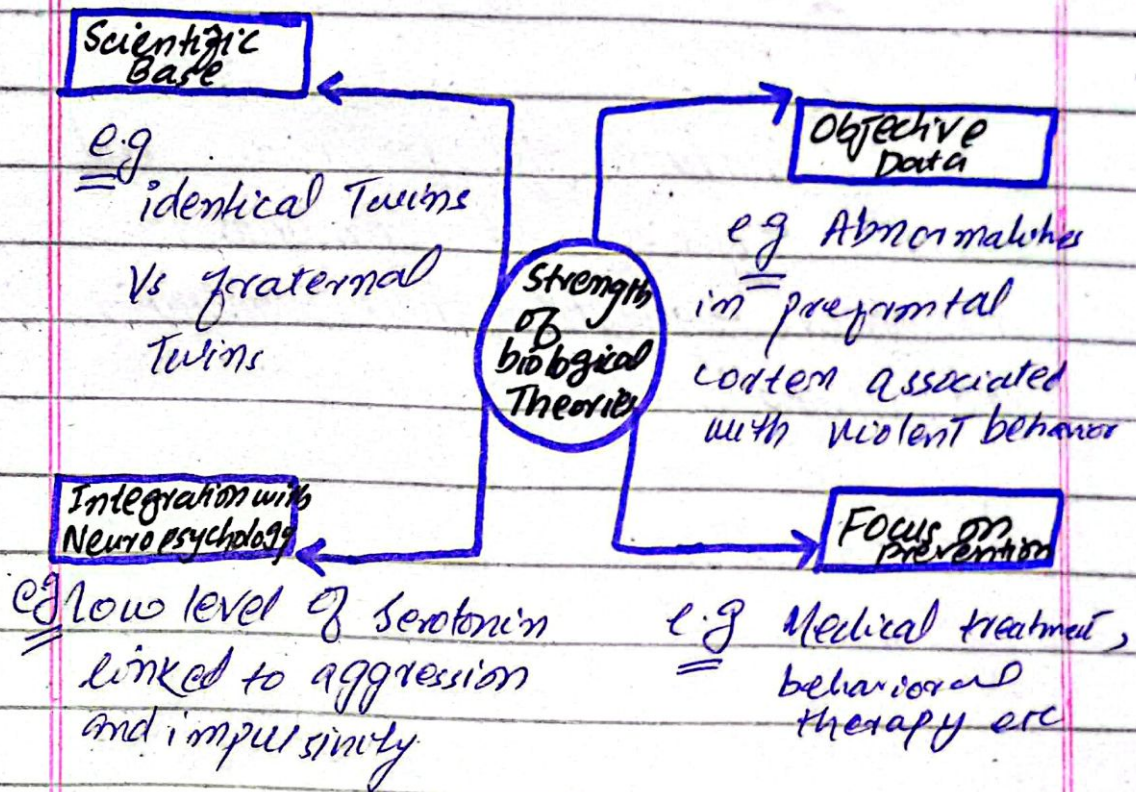 Scientific
Base
e.g
identical Twins
Vs fraternal
Twins
Objective
Data
e g Abnormalities
in prefrontal
cortex associated
with violent behavior
Strength
of
biological
Theories
Integration with
Neuropsychology
eg low level of Serotonin
linked to aggression
and impulsivity
Focus on
prevention
e.g Medical treatment,
behavioral
therapy etc